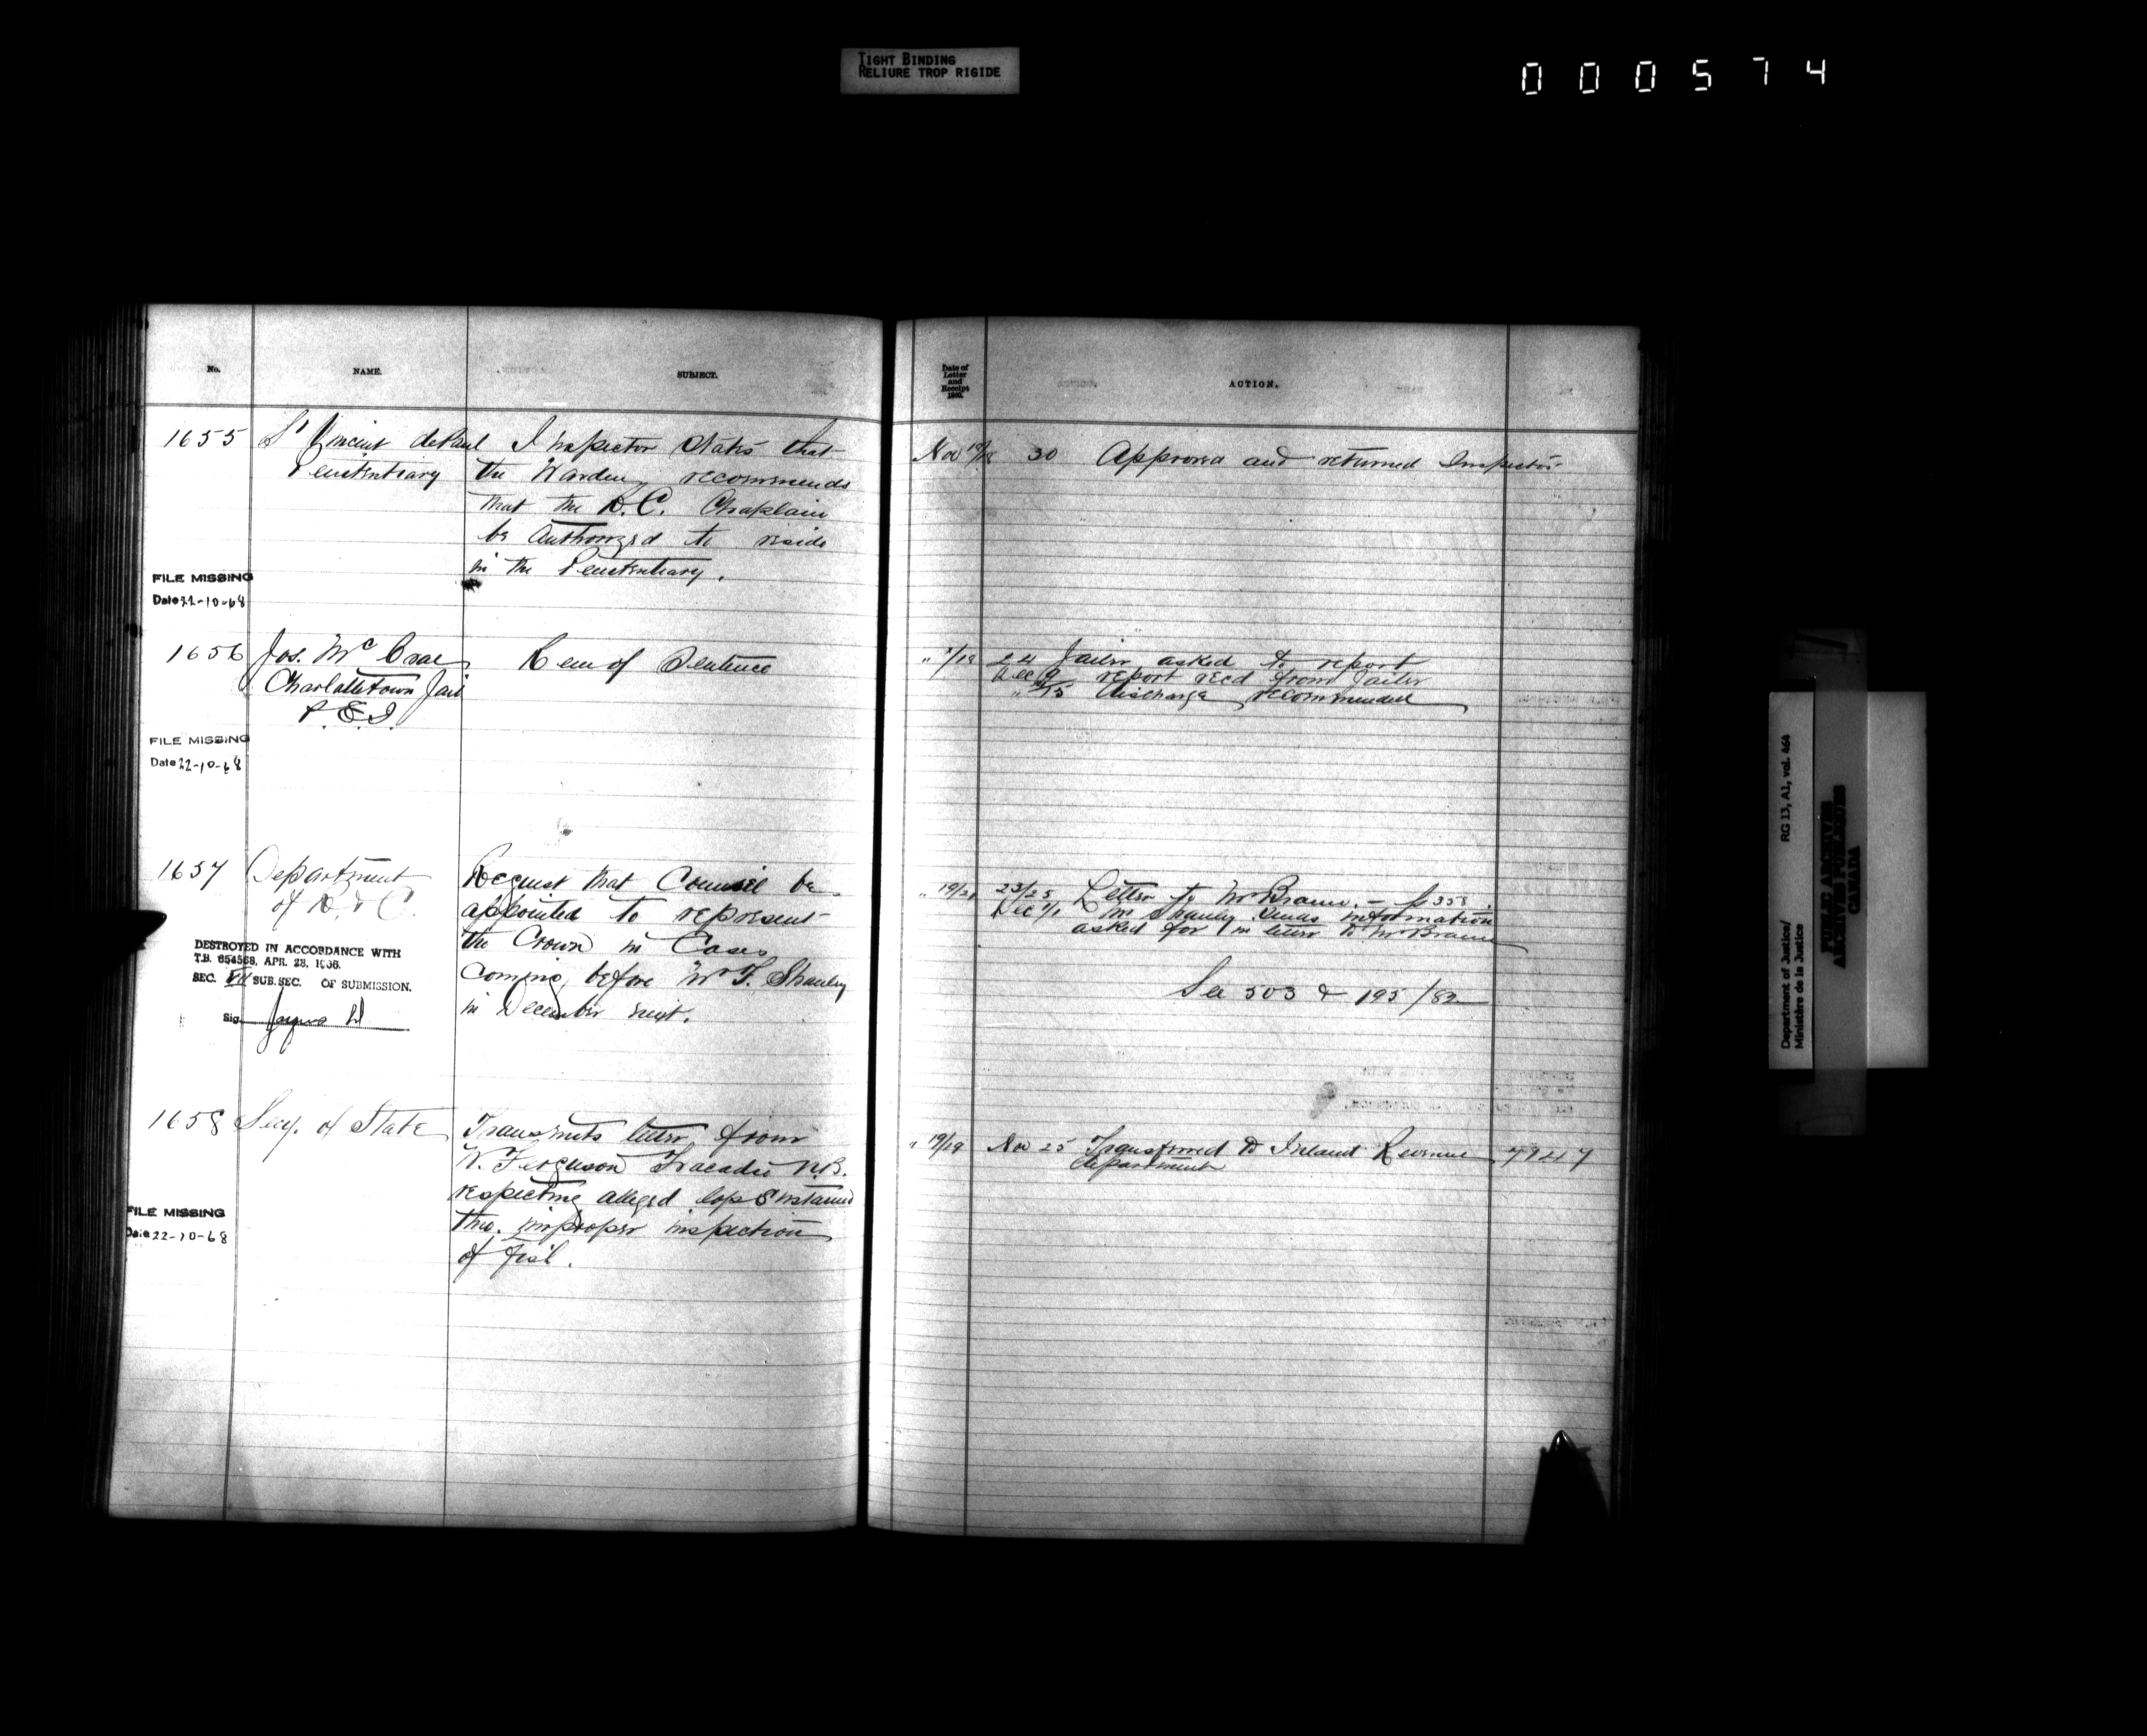 TIGHT BINDING
RELIURE TROP RIGIDE
000574
No.
NAME.
SUBJECT.
Date of
Letter
and
Receipt
ACTION.
1655
St Vincent de Paul
Penitentiary
Inspector states that
the Warden recommends
that the R.C. Chaplain
be authorized to reside
in the Penitentiary.
Nov 19/
30 Approved and returned Inspector
FILE MISSING
Date 22-10-68
1656
Jos. McCrae
Charlottetown Jail
P.E.I.
Rem of Sentence
24 Jailer asked to report
Dec 9 report recd from Jailer
" 15 Discharge recommended
FILE MISSING
Date 22-10-68
1657
Department
of R. & C.
Request that Counsel be
appointed to represent
the Crown in Cases
Coming before Mr F. Shanly
in December next.
" 19/21
23/25 Letter to Mr Braun. - p 358.
Dec 1/1 Mr Shanly sends information
asked for in letter to Mr Braun
See 503 & 195/82
DESTROYED IN ACCORDANCE WITH
T.B. 654568, APR. 28, 1966.
SEC. VII SUB.SEC. OF SUBMISSION.
Sig.
1658
Secy. of State
Transmits letter from
Ferguson Tracadie N.B.
respecting alleged loss sustained
thro. improper inspection
of fish.
" 19/19
Nov 25 Transferred to Inland Revenue
department
FILE MISSING
Date 22-10-68
Department of Justice/ RG 13, A1, vol. 464
Ministère de la Justice
PUBLIC ARCHIVES
ARCHIVES PUBLIQUES
CANADA